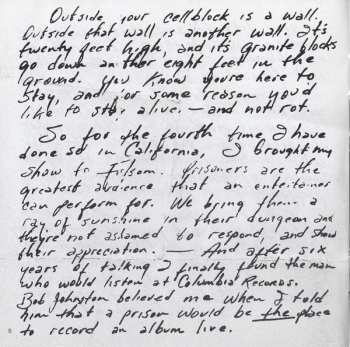 Outside your cellblock is a wall.
Outside that wall is another wall. It's
twenty feet high, and its granite blocks
go down another eight feet in the
ground. You know you're here to
stay, and for some reason you'd
like to stay alive. — and not rot.
So for the fourth time I have
done so in California, I brought my
show to Folsom. Prisoners are the
greatest audience that an entertainer
can perform for. We bring them a
ray of sunshine in their dungeon and
they're not ashamed to respond, and show
their appreciation. — And after six
years of talking I finally found the man
who would listen at Columbia Records.
Bob Johnston believed me when I told
him that a prison would be the place
to record an album live.